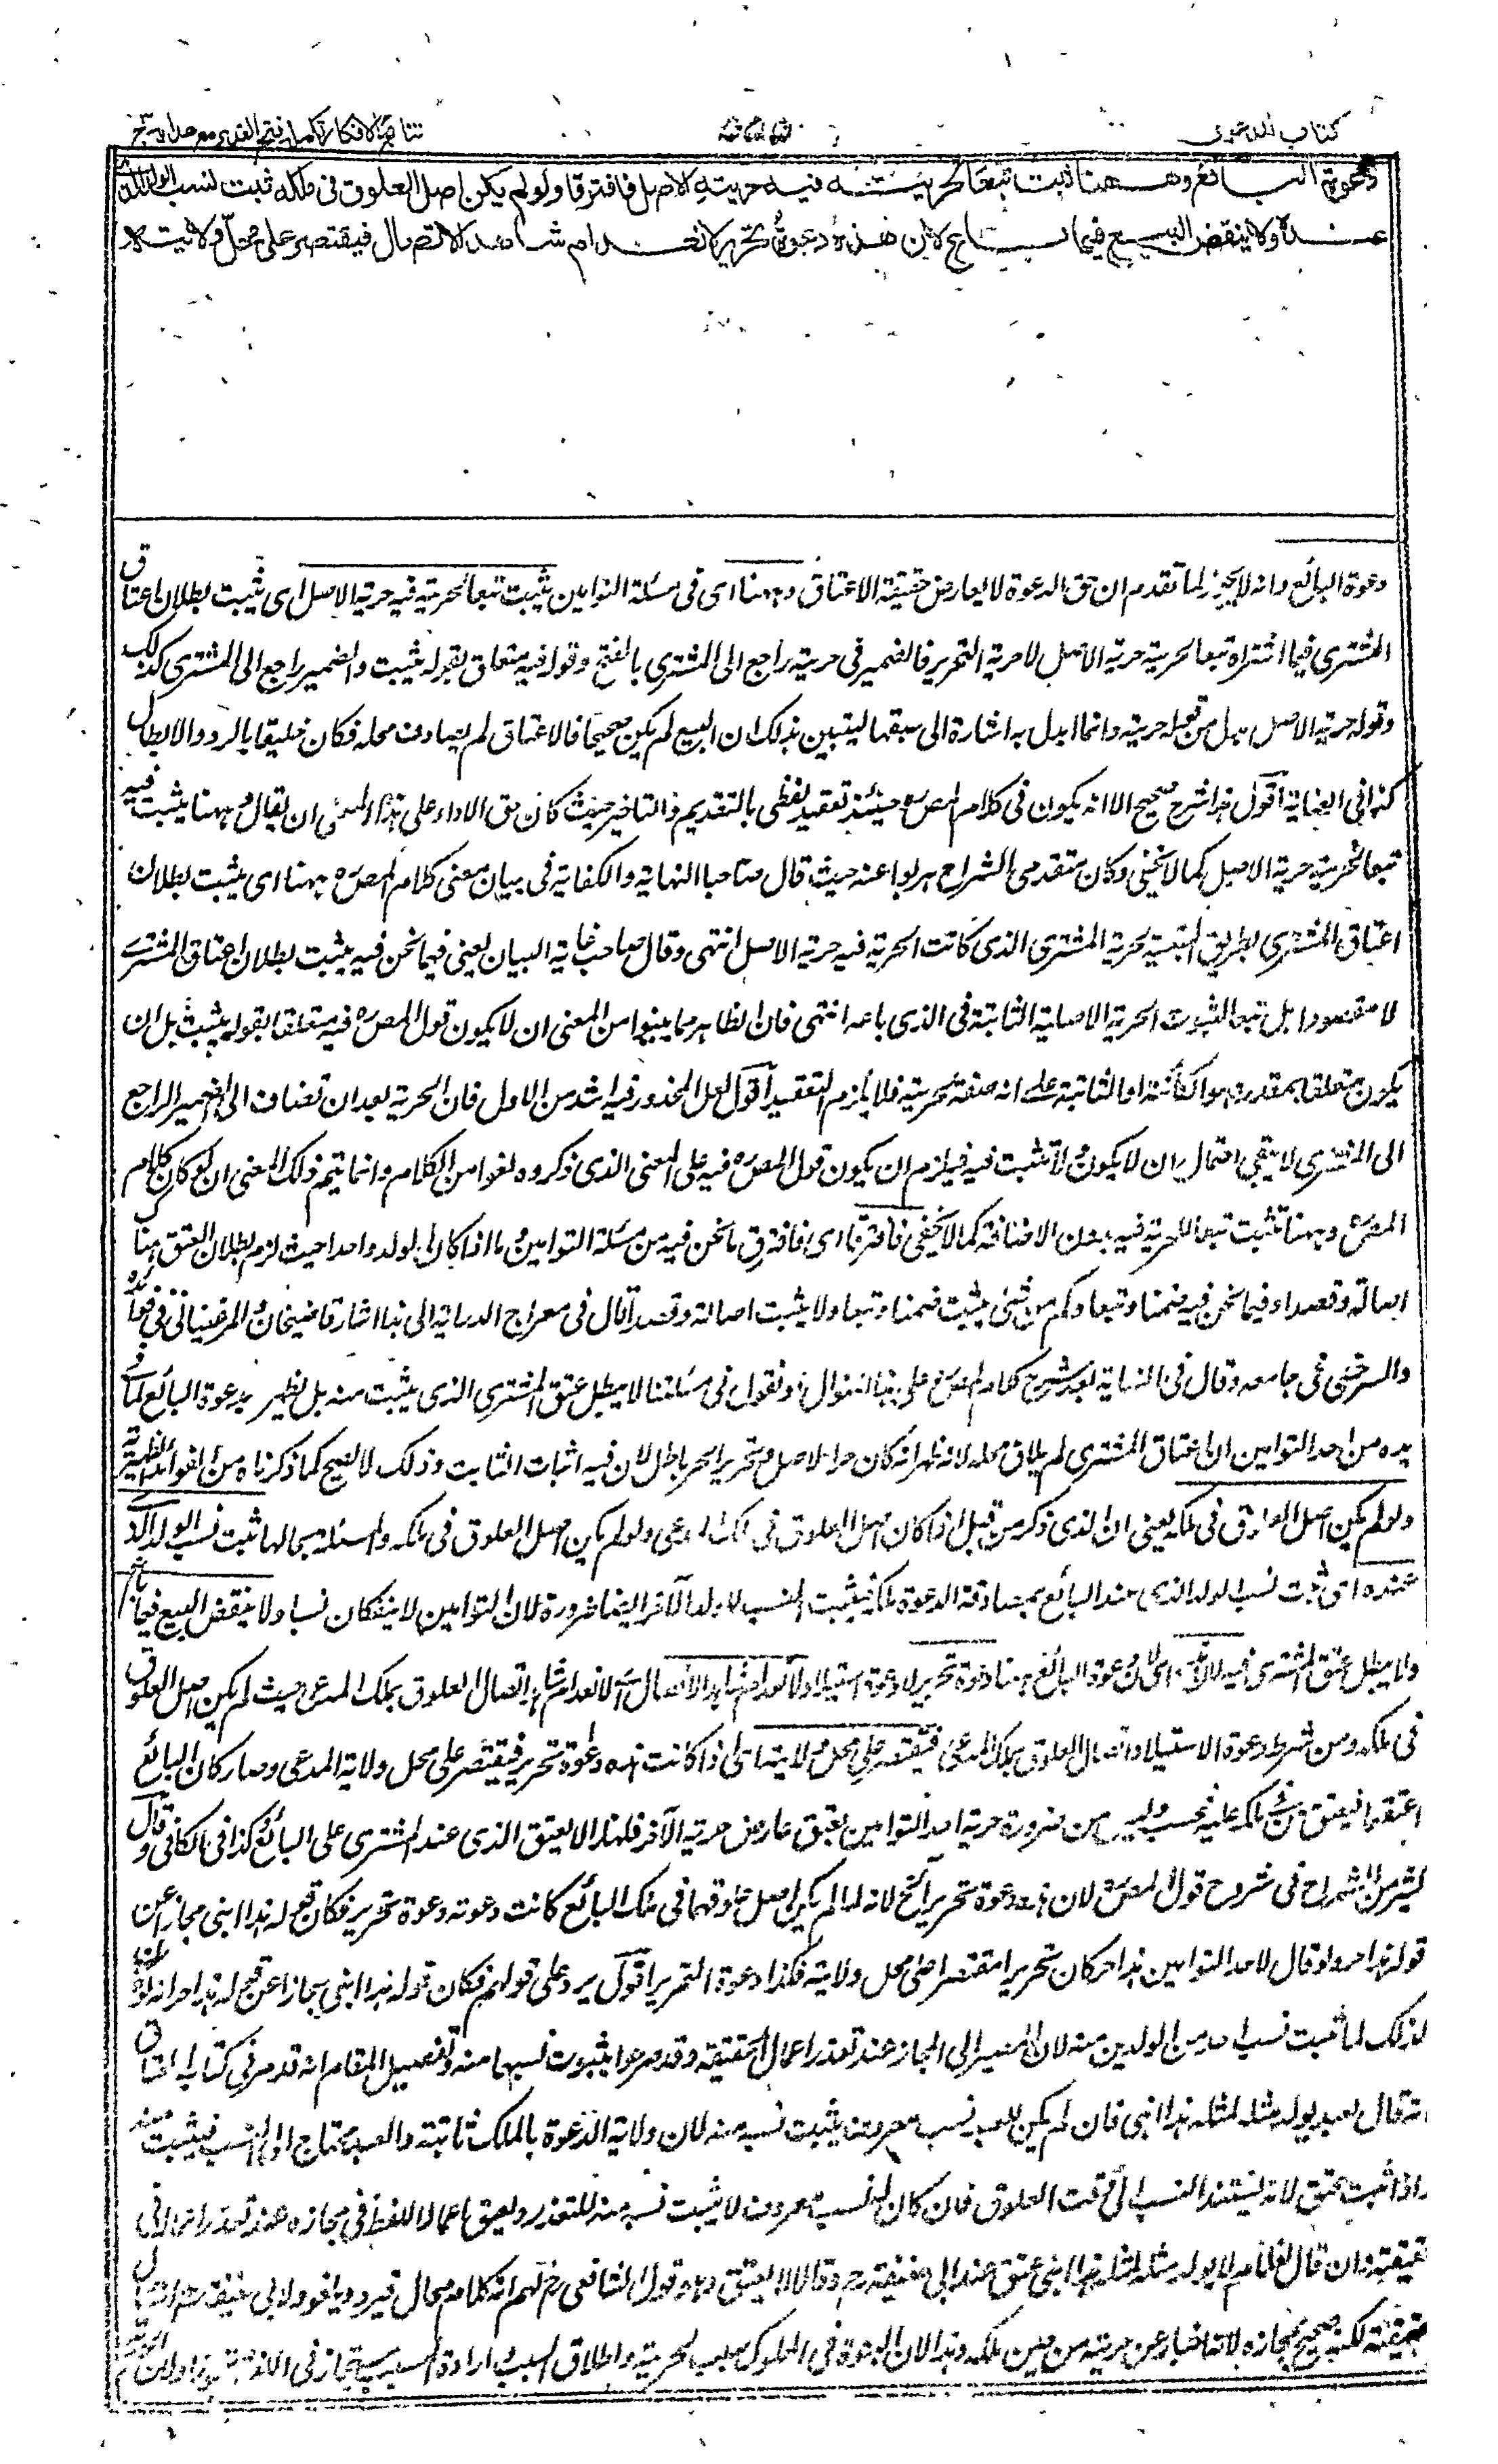 كتاب الدعوى
نتائج الافكار تكملة فتح القدير مع هداية ج
دعوة البائع وههنا ثبت تبعا لحريته فيه حرية الاصل فافترقا ولو لم يكن اصل العلوق فى ملكه ثبت نسب الولد الذى
عنده ولا ينقض البيع فيما باع لان هذه دعوة تحرير لانعدام شاهد الاتصال فيقتصر على محل ولايته
دعوة البائع وانه لا يجوز لما تقدم ان حق الدعوة لا يعارض حقيقة الاعتاق وههنا اى فى مسئلة التوامين يثبت تبعا لحريته فيه حرية الاصل اى يثبت بطلان اعتاق
المشترى فيما اشتراه تبعا لحريته حرية الاصل لا حرية التحرير فالضمير فى حريته راجع الى المشترى بالفتح وقوله فيه متعلق بقوله يثبت والضمير راجع الى المشترى كذلك
وقوله حرية الاصل بدل من قوله حريته وانما ابدل به اشارة الى سبقها ليتبين بذلك ان البيع لم يكن صحيحا فالاعتاق لم يصادف محله فكان خليقا بالرد والابطال
كذا فى العناية اقول هذا شرح صحيح الا انه يكون فى كلام المصره حينئذ تعقيد لفظى بالتقديم والتاخير حيث كان حق الاداء على هذا المعنى ان يقال وههنا يثبت فيه
تبعا لحريته حرية الاصل كما لا يخفى وكان متقدمى الشراح هربوا عنه حيث قال صاحبا النهاية والكفاية فى بيان معنى كلام المصره ههنا اى يثبت بطلان
اعتاق المشترى بطريق التبعية لحرية المشترى الذى كانت الحرية فيه حرية الاصل انتهى وقال صاحب غاية البيان يعنى فيما نحن فيه يثبت بطلان اعتاق المشترى
لا مقصودا بل تبعا لثبوت الحرية الاصلية الثابتة فى الذى باعه انتهى فان الظاهر مما بينوا من المعنى ان لا يكون قول المصره فيه متعلقا بقوله يثبت بل ان
يكون متعلقا بمقدر هو الكائنة او الثابتة على انه صفة لحريته فلا يلزم التعقيد اقول لعل المحذور فيه اشد من الاول فان الحرية بعد ان تضاف الى الضمير الراجع
الى المشترى لا يبقى احتمال ان لا يكون لا تثبت فيه فيلزم ان يكون قول المصره فيه على المعنى الذى ذكروه لغوا من الكلام وانما يتم ذلك المعنى ان لو كان كلام
المصره وههنا تثبت تبعا للحرية فيه بدون الاضافة كما لا يخفى فافترقا اى فافترق ما نحن فيه من مسئلة التوامين وما اذا كان الولد واحدا حيث لزم بطلان العتق هنا
اصالة وقصدا وفيما نحن فيه ضمنا وتبعا وكم من شئ يثبت ضمنا وتبعا ولا يثبت اصالة وقصدا قال فى معراج الدراية الى هذا اشار قاضيخان والمرغينانى فى فوائده
والسرخسى فى جامعه وقال فى النهاية بعد شرح كلام المصره على هذا المنوال او نقول فى مسئلتنا لا يبطل عتق المشترى الذى يثبت منه بل نظهر بدعوة البائع لما فى
يده من احد التوامين ان اعتاق المشترى لم يلاق محله لانه ظهر انه كان حر الاصل وتحرير الحر باطل لان فيه اثبات الثابت وذلك لا يصح كما ذكرناه من الفوائد الظهيرية
ولو لم يكن اصل العلوق فى ملكه يعنى ان الذى ذكر من قبل اذا كان اصل العلوق فى ملك المدعى ولو لم يكن اصل العلوق فى ملكه والمسئلة بحالها ثبت نسب الولد الذى
عنده اى ثبت نسب الولد الذى عند البائع بمصادقة الدعوة ملكه فيثبت النسب للولد الآخر ايضا ضرورة لان التوامين لا ينفكان نسبا ولا ينقض البيع فيما باع
ولا يبطل عتق المشترى فيه لان هذه اى لان دعوة البائع ههنا دعوة تحرير لا دعوة استيلاد لانعدام شاهد الاتصال اى لانعدام شاهد اتصال العلوق بملك المدعى حيث لم يكن اصل العلوق
فى ملكه ومن شرط دعوة الاستيلاد اتصال العلوق بملك المدعى فيقتصر على محل ولايته اى اذا كانت هذه دعوة تحرير فيقتصر على محل ولاية المدعى وصار كان البائع
اعتقهما فيعتق من فى ملكه عليه فحسب وليس من ضرورة حرية احد التوامين بعتق عارض حرية الآخر فلهذا لا يعتق الذى عند المشترى على البائع كذا فى الكافى وقال
كثير من الشراح فى شروح قول المصره لان هذه دعوة تحرير الخ لانه لما لم يكن اصل علوقهما فى ملك البائع كانت دعوته دعوة تحرير فكان قوله هذا ابنى مجازا عن
قوله هذا حر ولو قال لاحد التوامين هذا حر كان تحريرا مقتصرا على محل ولايته فكذا دعوة التحرير اقول يرد على قولهم فكان قوله هذا ابنى مجازا عن قوله هذا حر انه لو كان
كذلك لما ثبت نسب احد من الولدين منه لان المصير الى المجاز عند تعذر اعمال الحقيقة وقد صرحوا بثبوت نسبهما منه وتفصيل المقام انه قد مر فى كتاب العتاق
انه قال لعبد يولد مثله لمثله هذا ابنى فان لم يكن للعبد نسب معروف يثبت نسبه منه لان ولاية الدعوة بالملك ثابتة والعبد محتاج الى النسب فيثبت منه
واذا ثبت عتق لانه يستند النسب الى وقت العلوق فان كان له نسب معروف لا يثبت نسبه منه للتعذر ويعتق اعمالا للفظ فى مجازه عند تعذر اعماله فى
حقيقته وان قال لغلام لا يولد مثله لمثله هذا ابنى عتق عند ابى حنيفة رح وقالا لا يعتق وهو قول الشافعى رح لهم انه كلام محال فيرد ويلغو ولابى حنيفة رح انه محال
بحقيقته لكنه صحيح بمجازه لانه اخبار عن حريته من حين ملكه وهذا لان البنوة فى المملوك سبب لحريته واطلاق السبب وارادة المسبب مستجاز فى اللغة